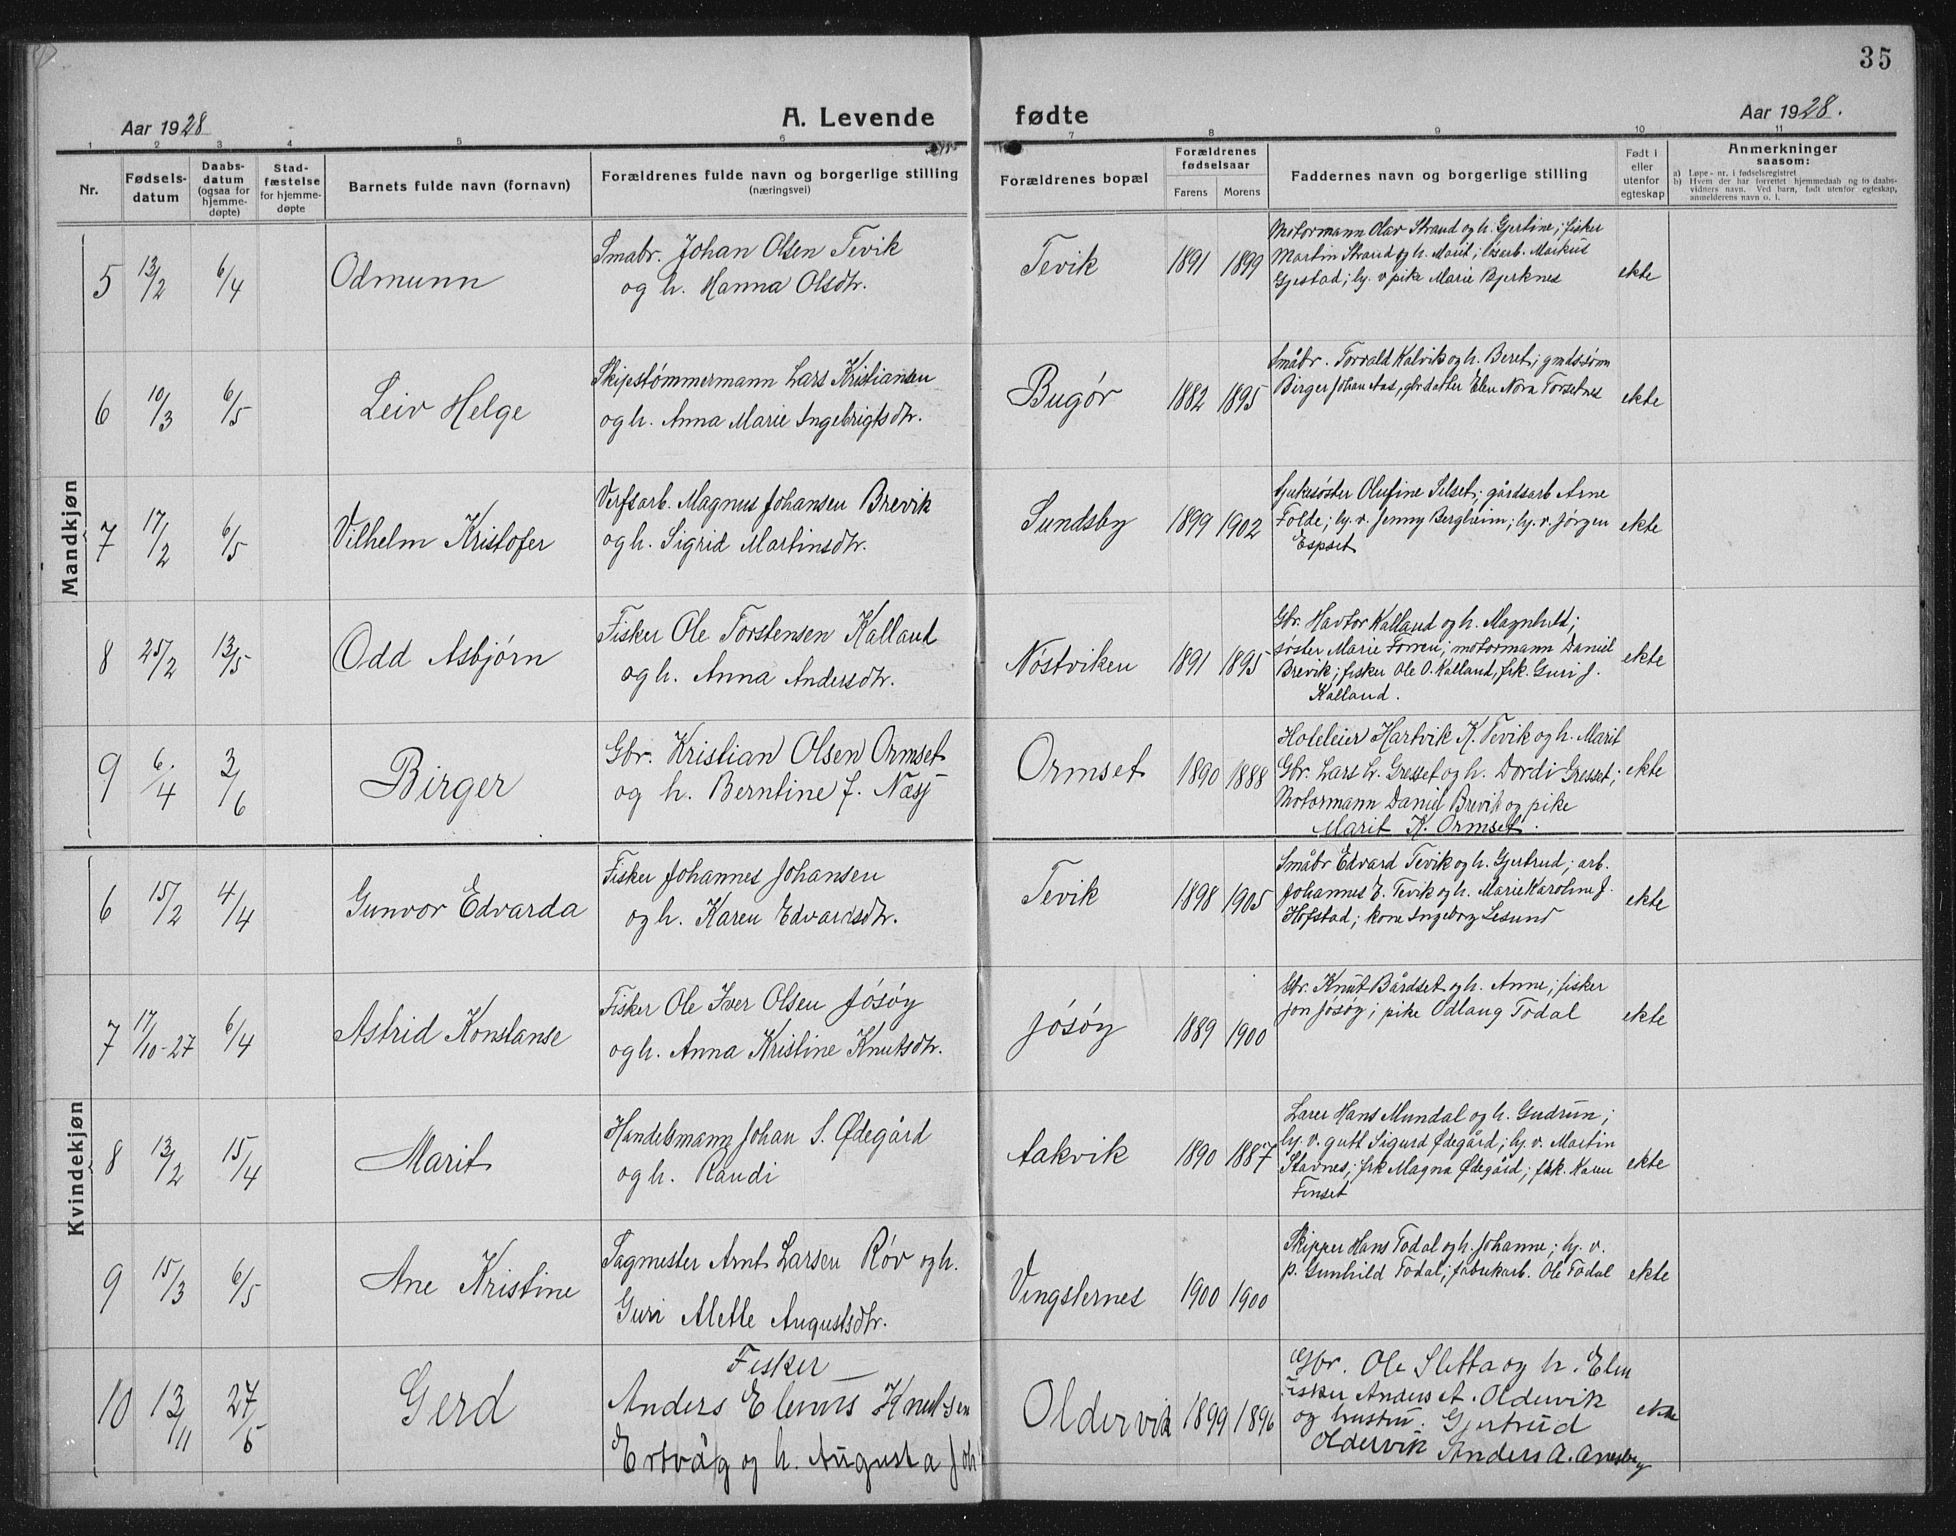 35
Aar 1928
A. Levende
fødte
Aar 1928.
1 2 3 4 5 6 7 8 9 10 11
Nr.
Fødsels-
datum
Daabs-
datum
(ogsaa for
hjemme-
døpte)
Stad-
fæstelse
for hjemme-
døpte
Barnets fulde navn (fornavn)
Forældrenes fulde navn og borgerlige stilling
(næringsvei)
Forældrenes bopæl
Forældrenes
fødselsaar
Farens Morens
Faddernes navn og borgerlige stilling
Født i
eller
utenfor
egteskap
Anmerkninger
saasom:
a) Løpe-nr. i fødselsregistret
b) Hvem der har forrettet hjemmedaab og to daabs-
vidners navn. Ved barn, født utenfor egteskap,
anmelderens navn o. l.
Mandkjøn
5 13/2 6/4 Odmunn
Smabr. Johan Olsen Tevik
og h. Hanna Olsdtr.
Tevik 1891 1899
Motormann Olav Strand og h. Gjertine; fisker
Martin Strand og h. Marit; løsarb. Markus
Gjestad; by. v pike Marie Bjerknes
ekte
6 10/3 6/5 Leiv Helge
Skipstømmermann Lars Kristiansen
og h. Anna Marie Ingebrigtsdtr.
Bugør 1882 1895
Småbr. Torvald Kalvik og h. Beret; gmdssønn
Birger Johan Aas, gbrdatter Elen Nora Torsetnes
ekte
7 17/2 6/5 Vilhelm Kristofer
Verfsarb. Magnus Johansen Brevik
og h. Sigrid Martinsdtr.
Sundsby 1899 1902
Sykesøster Olufine Selset; gårdsarb Arne
Folde; by. v. Jenny Bergheim; by. v. Jørgen
Espset
ekte
8 25/2 13/5 Odd Asbjørn
Fisker Ole Torstensen Kalland
og h. Anna Andersdtr.
Nøstviken 1891 1895
Gbr. Havtor Kalland og h. Magnhild;
søster Marie Forren; motormann Daniel
Brevik; fisker Ole O. Kalland, frk. Guri J.
Kalland.
ekte
9 6/4 3/6 Birger
Gbr. Kristian Olsen Ormset
og h. Berntine J. Næsj
Ormset 1890 1888
Hoteleier Hartvik K. Tevik og h. Marit
Gbr. Lars L. Gresset og h. Dordi Gresset;
Motormann Daniel Brevik og pike
Marit K. Ormset.
ekte
Kvindekjøn
6 15/2 4/4 Gunvor Edvarda
Fisker Johannes Johansen
og h. Karen Edvardsdtr.
Tevik 1898 1905
Småbr Edvard Tevik og h. Gjertrud; arb.
Johannes E. Tevik og h. Marie Karoline J.
Hofstad; kone Ingeborg Lesund
ekte
7 17/10-27 6/4 Astrid Konstanse
Fisker Ole Iver Olsen Jøsøy
og h. Anna Kristine Knutsdtr.
Jøsøy 1889 1900
Gbr. Knut Bårdset og h. Anne; fisker
Jon Jøsøy; pike Odlaug Todal
ekte
8 13/2 15/4 Marit
Handelsmann Johan S. Ødegård
og h. Randi
Aakvik 1890 1887
Lærer Hans Mundal og h. Gudrun;
by. v. gutt Sigurd Ødegård; by. v. Martin
Stavnes; frk Magna Ødegård; frk. Karen
Finset
ekte
9 15/3 6/5 Ane Kristine
Sagmester Arnt Larsen Røv og h.
Guri Alette Augustsdtr.
Vingsternes 1900 1900
Skipper Hans Todal og h. Johanne; by. v.
p. Gunhild Todal; fabrikarb. Ole Todal
ekte
10 13/11 27/5 Gerd
Fisker
Anders Elenus Knutsen
Ertvåg og h. Augusta Joh
Oldervik 1899 1896
Gbr. Ole Sletta og h. Elen
Fisker Anders A. Oldervik
og hustru. Gjertrud
Oldervik Anders A.
ekte